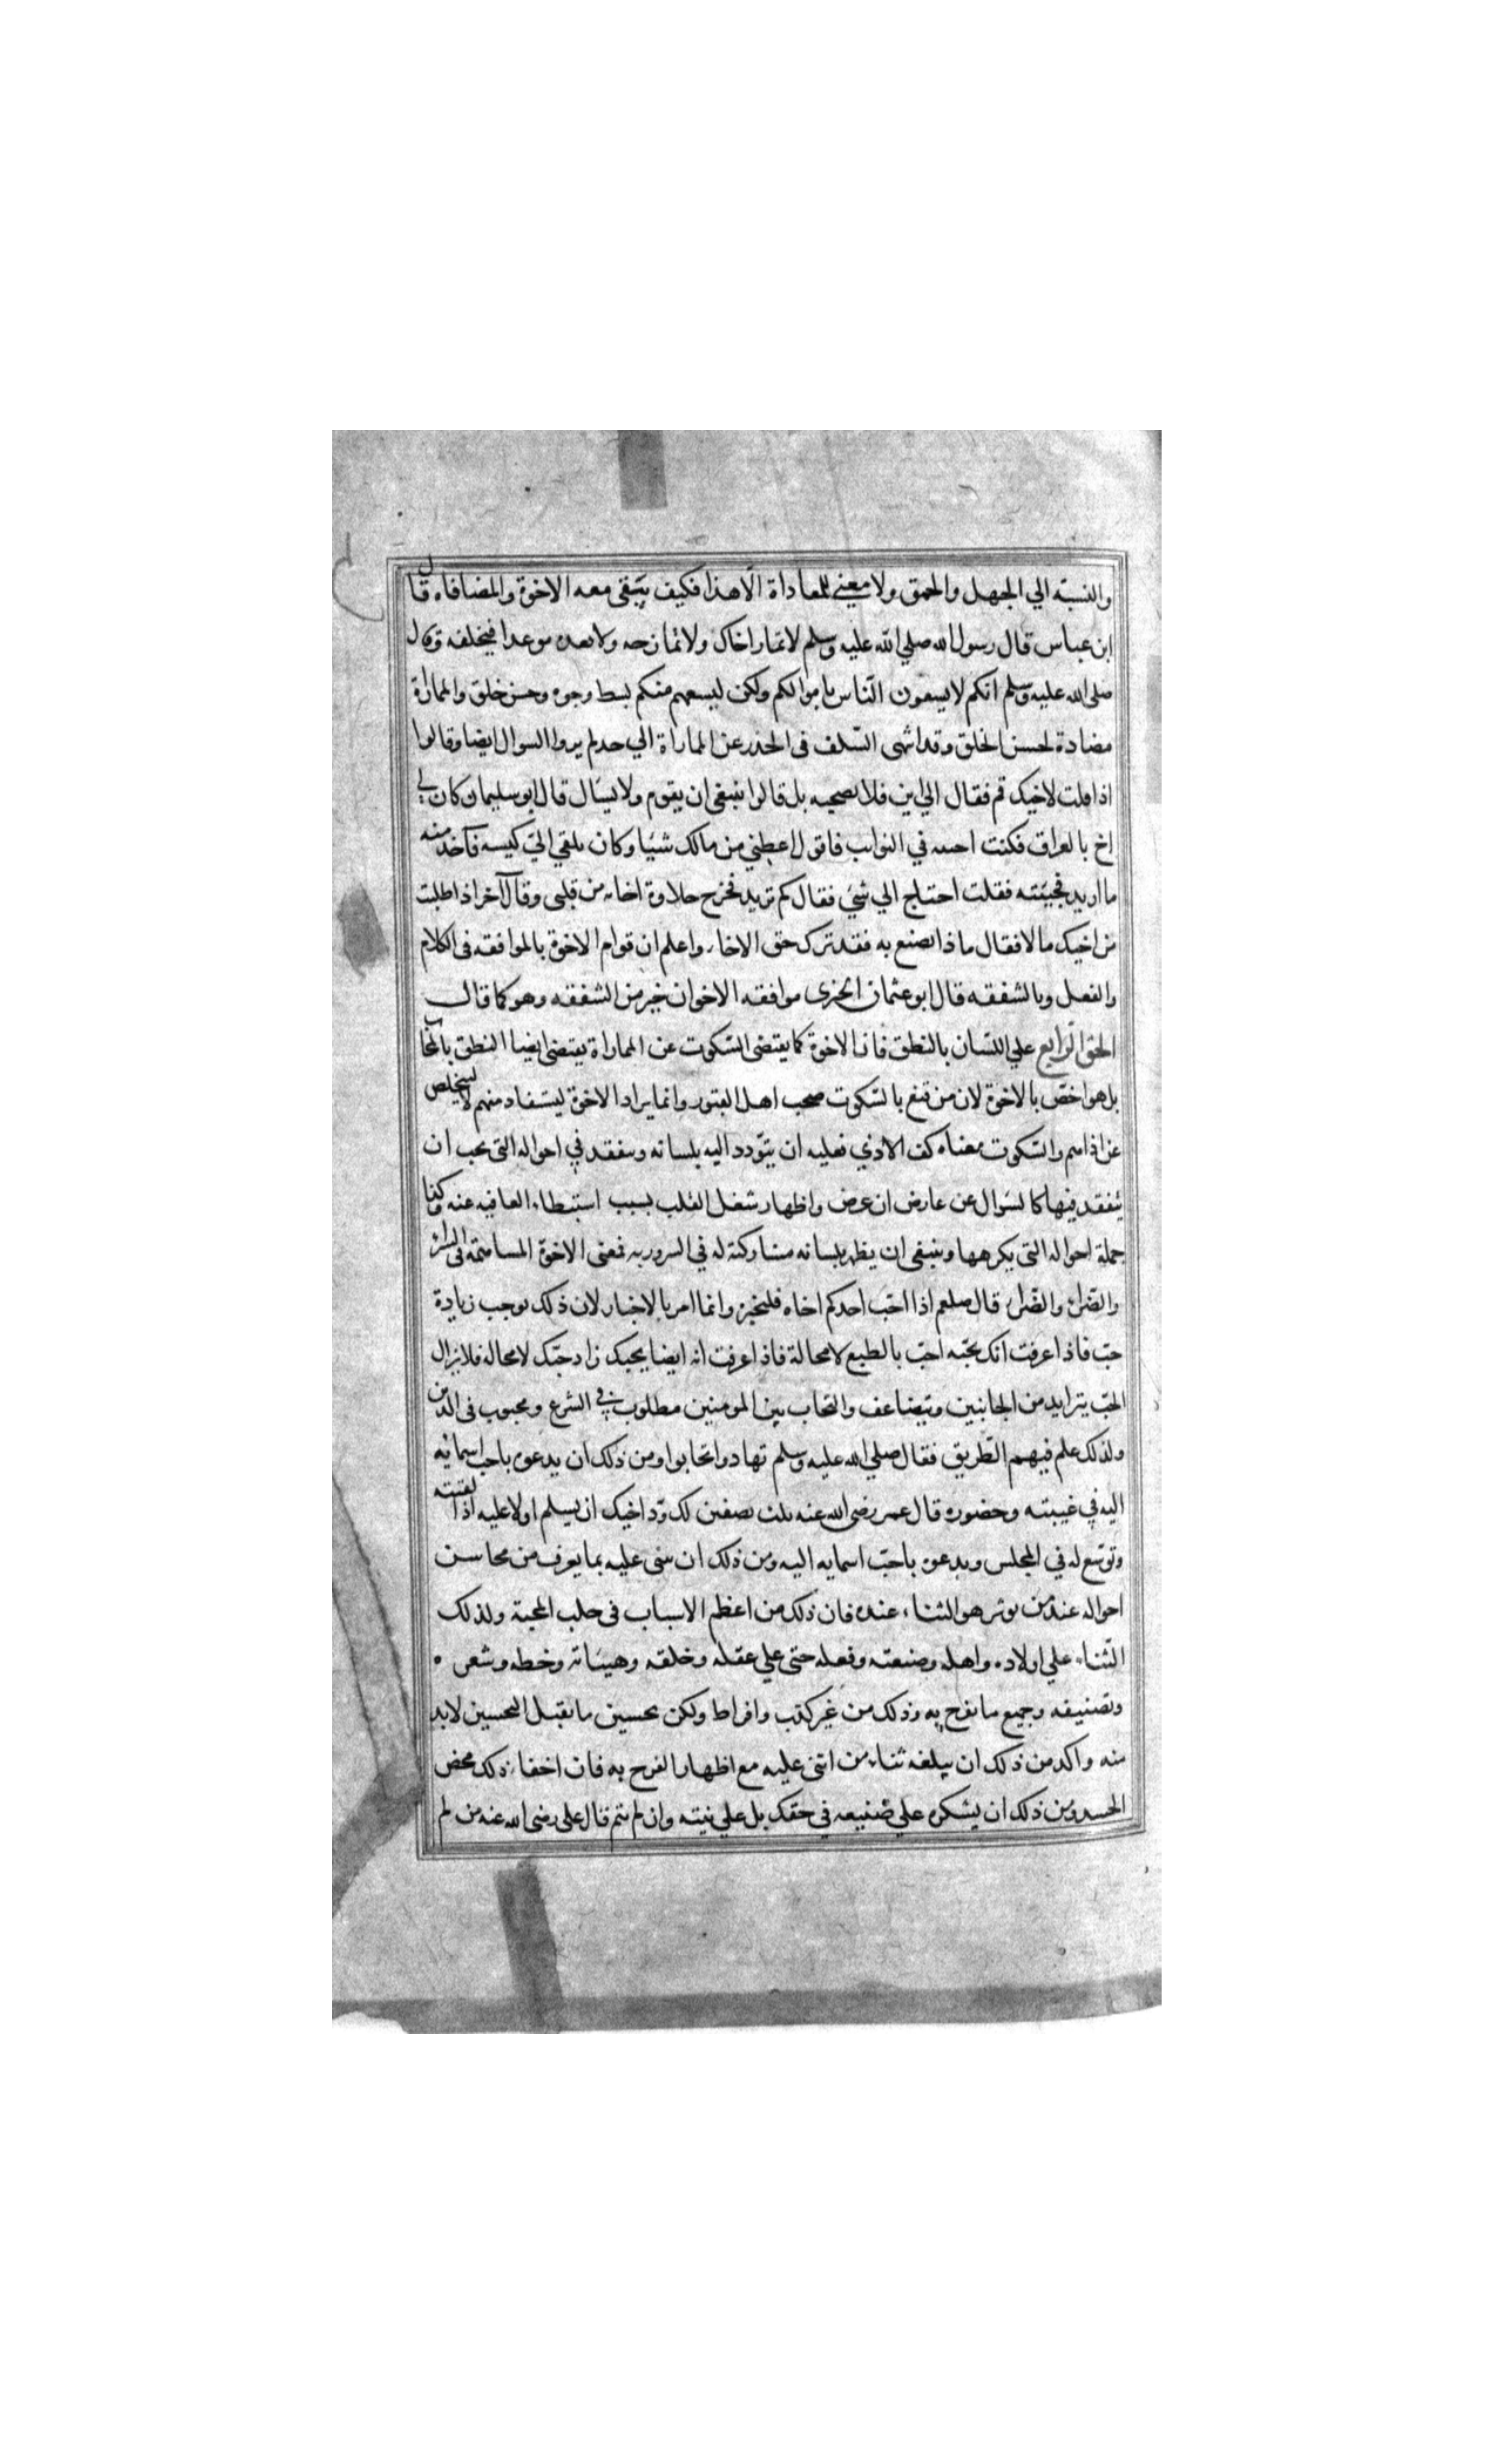 والنسبة الي الجهل والحمق ولا معني للمعاداة الّا هذا فكيف يتبقى معه الاخوة والمضافاه قال
ابن عباس قال رسول الله صلي الله عليه وسلم لا تمار اخاك ولا تمازحه ولا تعده موعدا فيخلفه وقال
صلى الله عليه وسلم انكم لا يسعون النّاس باموالكم ولكن ليسعهم منكم بسط وجوه وحسن خلق والمماراة
مضادة لحسن الخلق وقد انتهى السّلف فى الحذر عن المماراة الي حد لم يروا السوال ايضا وقالوا
اذا قلت لاخيك قم فقال الي اين فلا تصحبه بل قالوا ينبغى ان يقوم ولا يسال قال ابو سليمان كان لي
اخ بالعراق فكنت احىه في النوايب فاقول اعطني من مالك شيا وكان يلقي اليّ كيسه فآخذ منه
ما اريد فجيئته فقلت احتاج الي شيء فقال كم تريد فخرج حلاوة اخايه من قلبى وقال آخر اذا طلبت
من اخيك مالا فقال ماذا تصنع به فقد ترك حق الاخاء واعلم ان قوام الاخوة بالموافقه فى الكلام
والفعل وبالشفقه قال ابو عثمان الحيرى موافقه الاخوان خير من الشفقه وهو كما قال
الحق الرّابع علي اللسان بالنطق فان الاخوة كما يقتضى السّكوت عن المماراة يقتضى ايضا النطق بالمحاب
بل هو اخصّ بالاخوة لان من قنع بالسّكوت صحب اهل القبور وانما يراد الاخوة ليستفاد منهم لا ليتخلص
عن اذاهم والسّكوت معناه كف الاذي فعليه ان يتودد اليه بلسانه ويتفقد في احواله التى يحب ان
يتفقد فيها كالسوال عن عارض ان عرض واظهار شغل القلب بسبب استبطاء العافيه عنه وكذا
جملة احواله التى يكرهها وينبغى ان يظهر بلسانه مشاركته له في السرور به فمعنى الاخوة المساهمة فى السراء
والضراء قال صلعم اذا احّب احدكم اخاه فليخبره وانما امر بالاخبار لان ذلك يوجب زيادة
حبّ فاذا عرفت انك تحبّه احبّ بالطبع لا محالة فاذا عرفت انه ايضا يحبك زاد حبّك لا محاله فلا يزال
الحبّ يتزايد من الجانبين ويتضاعف والتحاب بين المومنين مطلوب في الشرع ومحبوب فى الدين
ولذلك علم فيهم الطّريق فقال صلي الله عليه وسلم تهادوا تحابوا ومن ذلك ان يدعوه باحب اسمايه
اليه في غيبته وحضوره قال عمر رضى الله عنه ثلث يصفين لك ودّ اخيك ان يسلم اولا عليه اذا لقيته
وتوسّع له في المجلس ويدعوه باحبّ اسمايه اليه ومن ذلك ان يثنى عليه بما يعرف من محاسن
احواله عند من يوثر هو الثناء عنده فان ذلك من اعظم الاسباب فى جلب المحبة ولذلك
الثّناء علي اولاده واهله وصنعته وفعله حتى علي عقله وخلقه وهيئاته وخطه وشعره
وتصنيفه وجميع ما يفرح به وذلك من غير كذب وافراط ولكن تحسين ما يقبل التحسين لا بد
منه واكد من ذلك ان يبلغه ثناء من اثنى عليه مع اظهار الفرح به فان اخفاء ذلك محض
الحسد ومن ذلك ان يشكره علي صنيعه في حقك بل علي نيته وان لم يتم قال على رضى الله عنه من لم